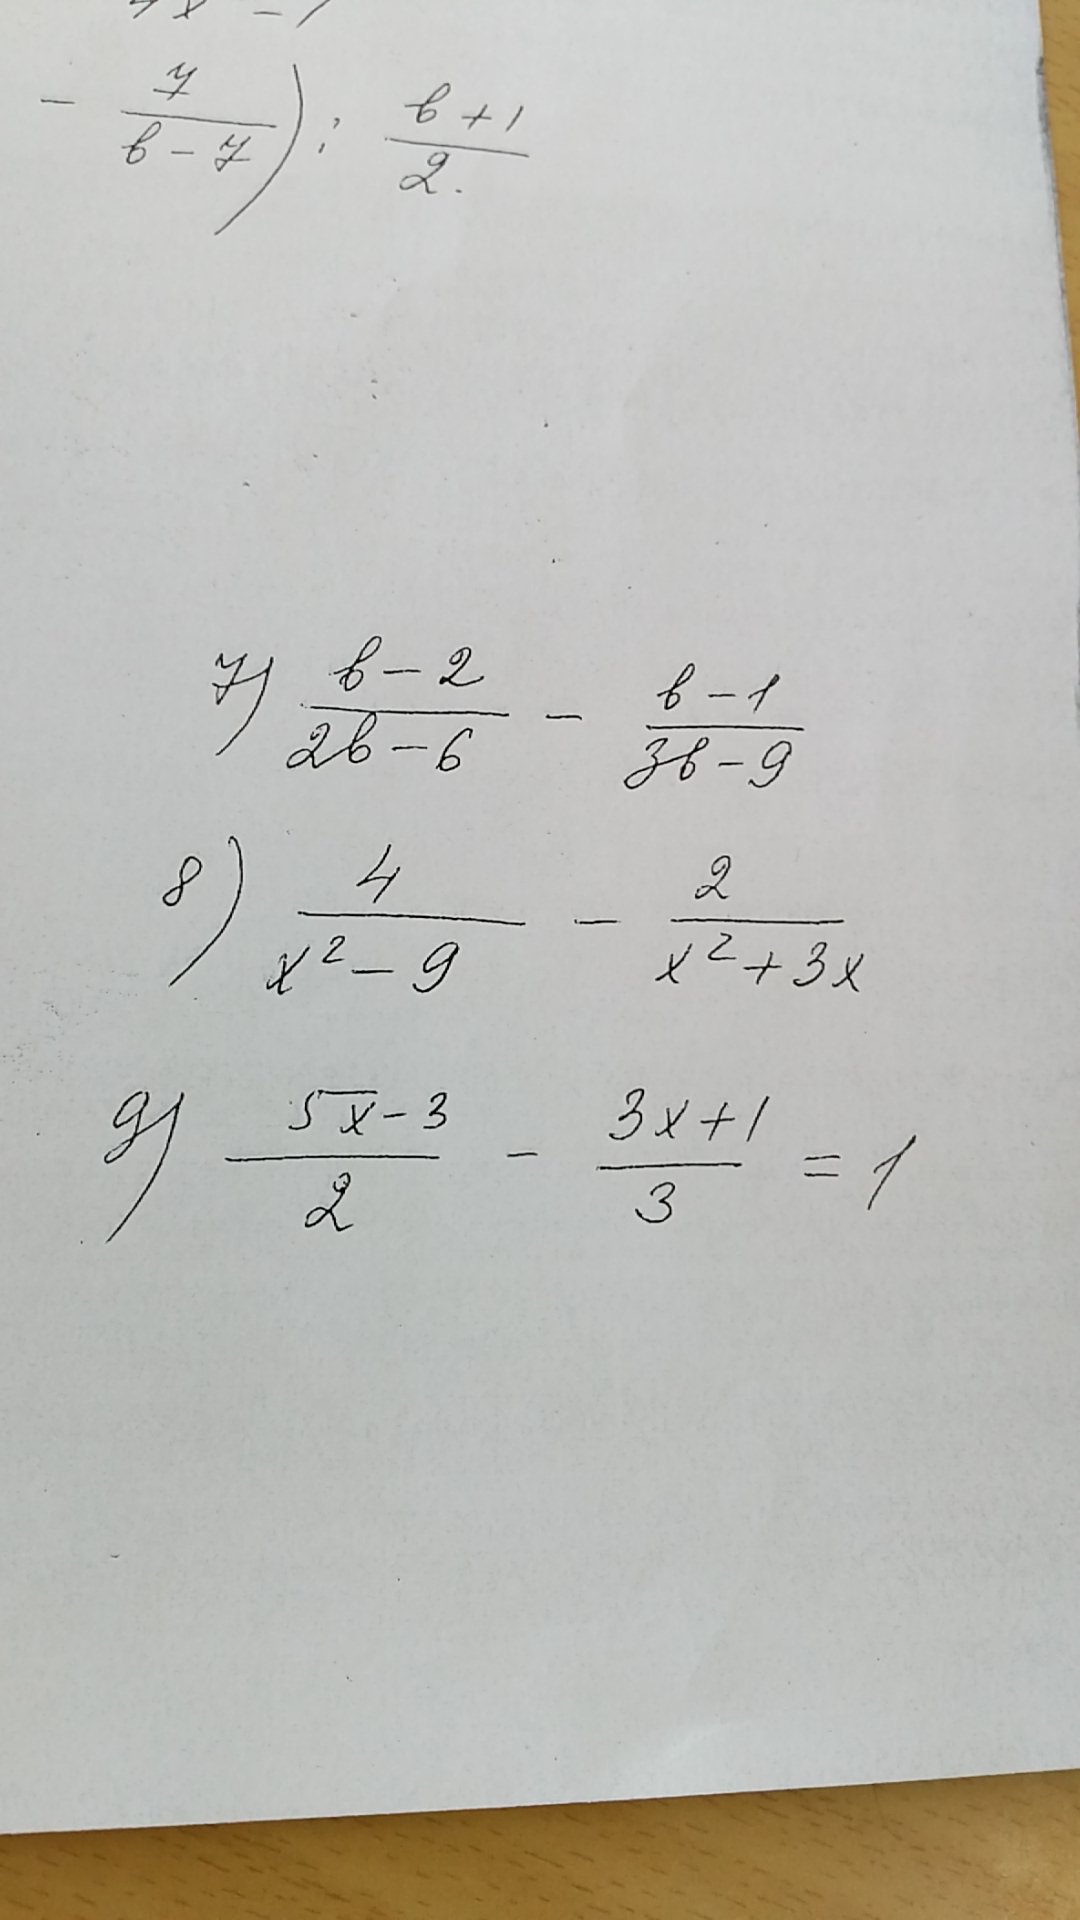 - 7/(b-7)) : (b+1)/2.
7) (b-2)/(2b-6) - (b-1)/(3b-9)
8) 4/(x²-9) - 2/(x²+3x)
9) (5x-3)/2 - (3x+1)/3 = 1